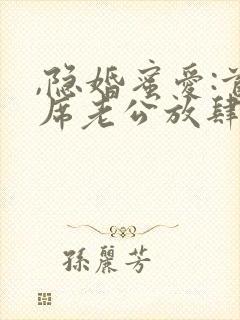 ,隐婚蜜爱:首
席老公放肆
孫麗芳